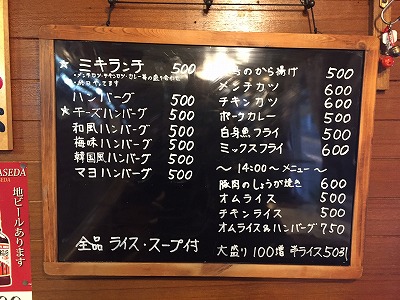 ★ミキランチ 500
・メンチカツ・チキンカツ・カレー等の盛り合わせ
ハンバーグ 500
★チーズハンバーグ 500
和風ハンバーグ 500
梅味ハンバーグ 500
韓国風ハンバーグ 500
マヨハンバーグ 500
全品 ライス・スープ付
のから揚げ 500
メンチカツ 600
チキンカツ 600
ポークカレー 500
白身魚フライ 500
ミックスフライ 600
〜14:00〜メニュー〜
豚肉のしょうが焼き 600
オムライス 500
チキンライス 500
オムライス&ハンバーグ 750
大盛り100増 半ライス50引
WASEDA
地ビールあります